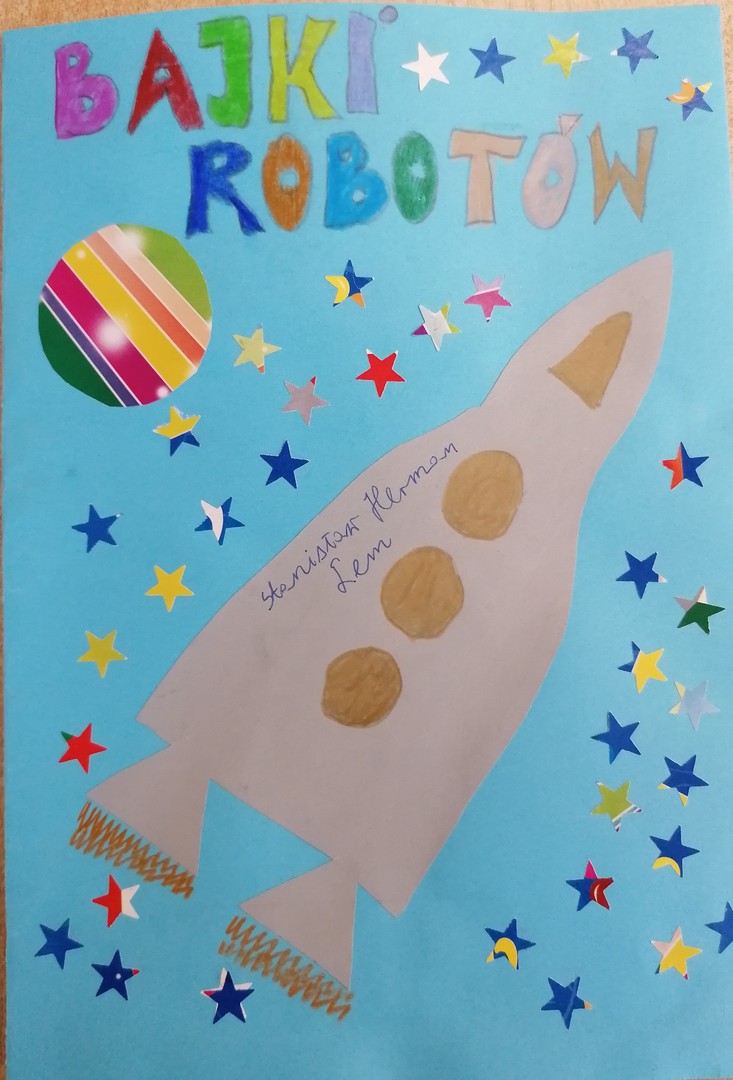 BAJKI
ROBOTÓW
Stanisław Herman
Lem